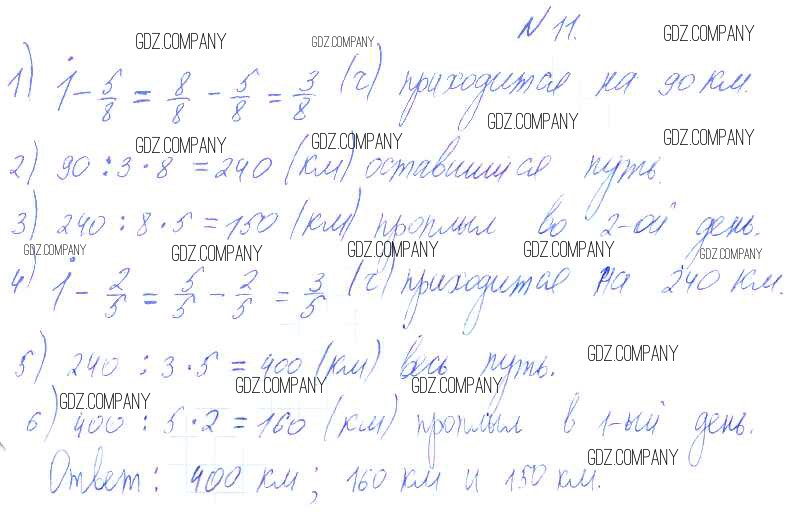 GDZ.COMPANY GDZ.COMPANY N 11. GDZ.COMPANY
1) 1 - 5/8 = 8/8 - 5/8 = 3/8 (ч) приходится на 90 км.
GDZ.COMPANY GDZ.COMPANY GDZ.COMPANY GDZ.COMPANY
2) 90 : 3 · 8 = 240 (км) оставшийся путь.
3) 240 : 8 · 5 = 150 (км) проплыл во 2-ой день.
GDZ.COMPANY GDZ.COMPANY GDZ.COMPANY GDZ.COMPANY GDZ.COMPANY
4) 1 - 2/5 = 5/5 - 2/5 = 3/5 (ч) приходится на 240 км.
5) 240 : 3 · 5 = 400 (км) весь путь. GDZ.COMPANY
GDZ.COMPANY GDZ.COMPANY GDZ.COMPANY
6) 400 : 5 · 2 = 160 (км) проплыл в 1-ый день.
GDZ.COMPANY
Ответ: 400 км; 160 км и 150 км.